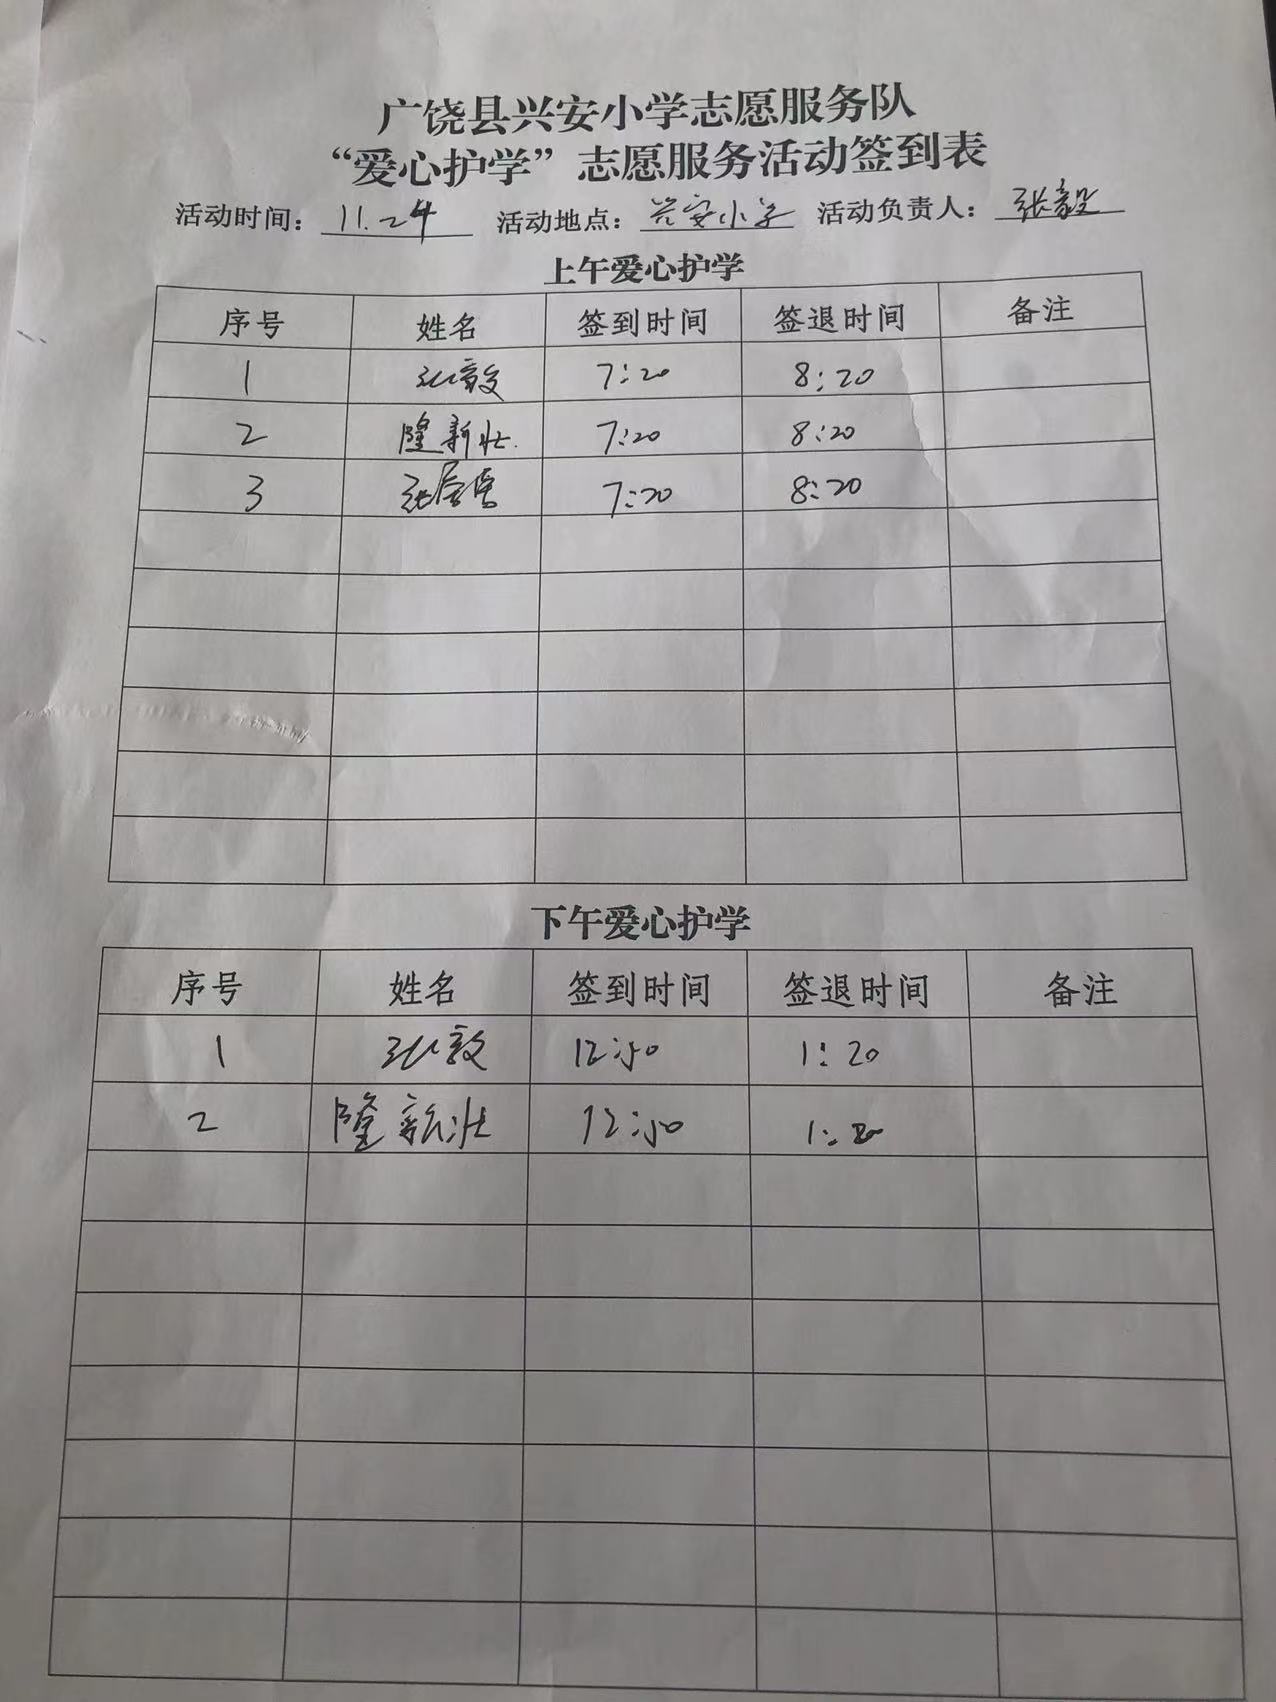 广饶县兴安小学志愿服务队
“爱心护学”志愿服务活动签到表
活动时间：11.24 活动地点：兴安小学 活动负责人：张毅
上午爱心护学
序号 姓名 签到时间 签退时间 备注
1 张毅 7:20 8:20
2 隆新壮 7:20 8:20
3 7:20 8:20
下午爱心护学
序号 姓名 签到时间 签退时间 备注
1 张毅 12:50 1:20
2 隆新壮 12:50 1:20